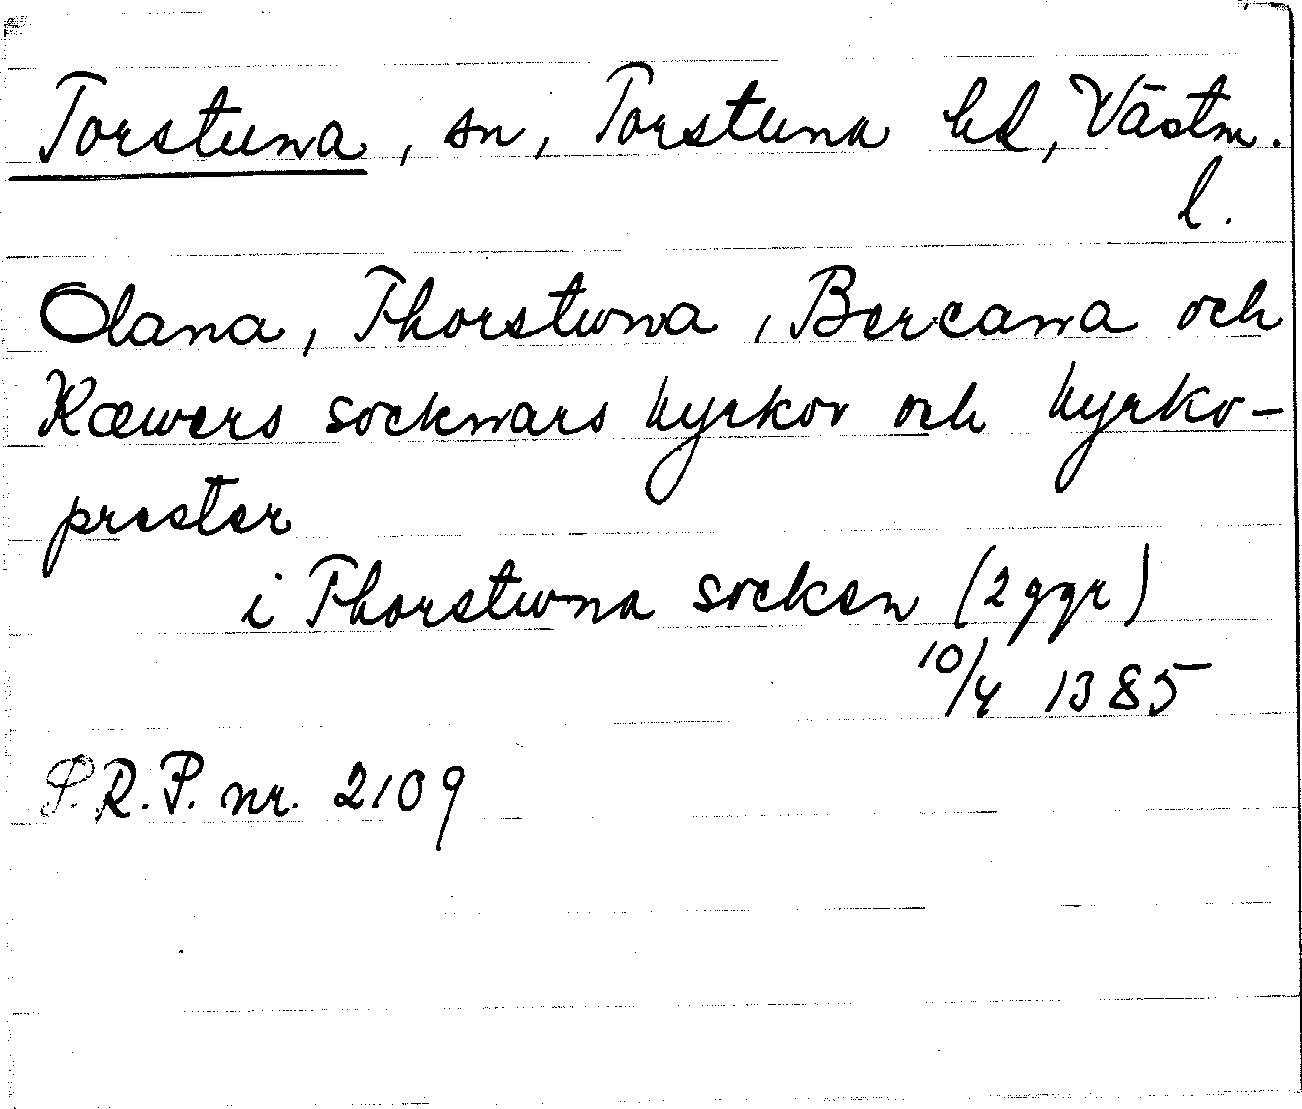 Torstuna, sn, Torstuna hd, Västm.
l.
Olana, Thorstwna, Bercama och
Kæwers socknars kyrkor och kyrko-
prester
i Thorstwna socken (2 ggr)
10/4 1385
S.R.P. nr. 2109